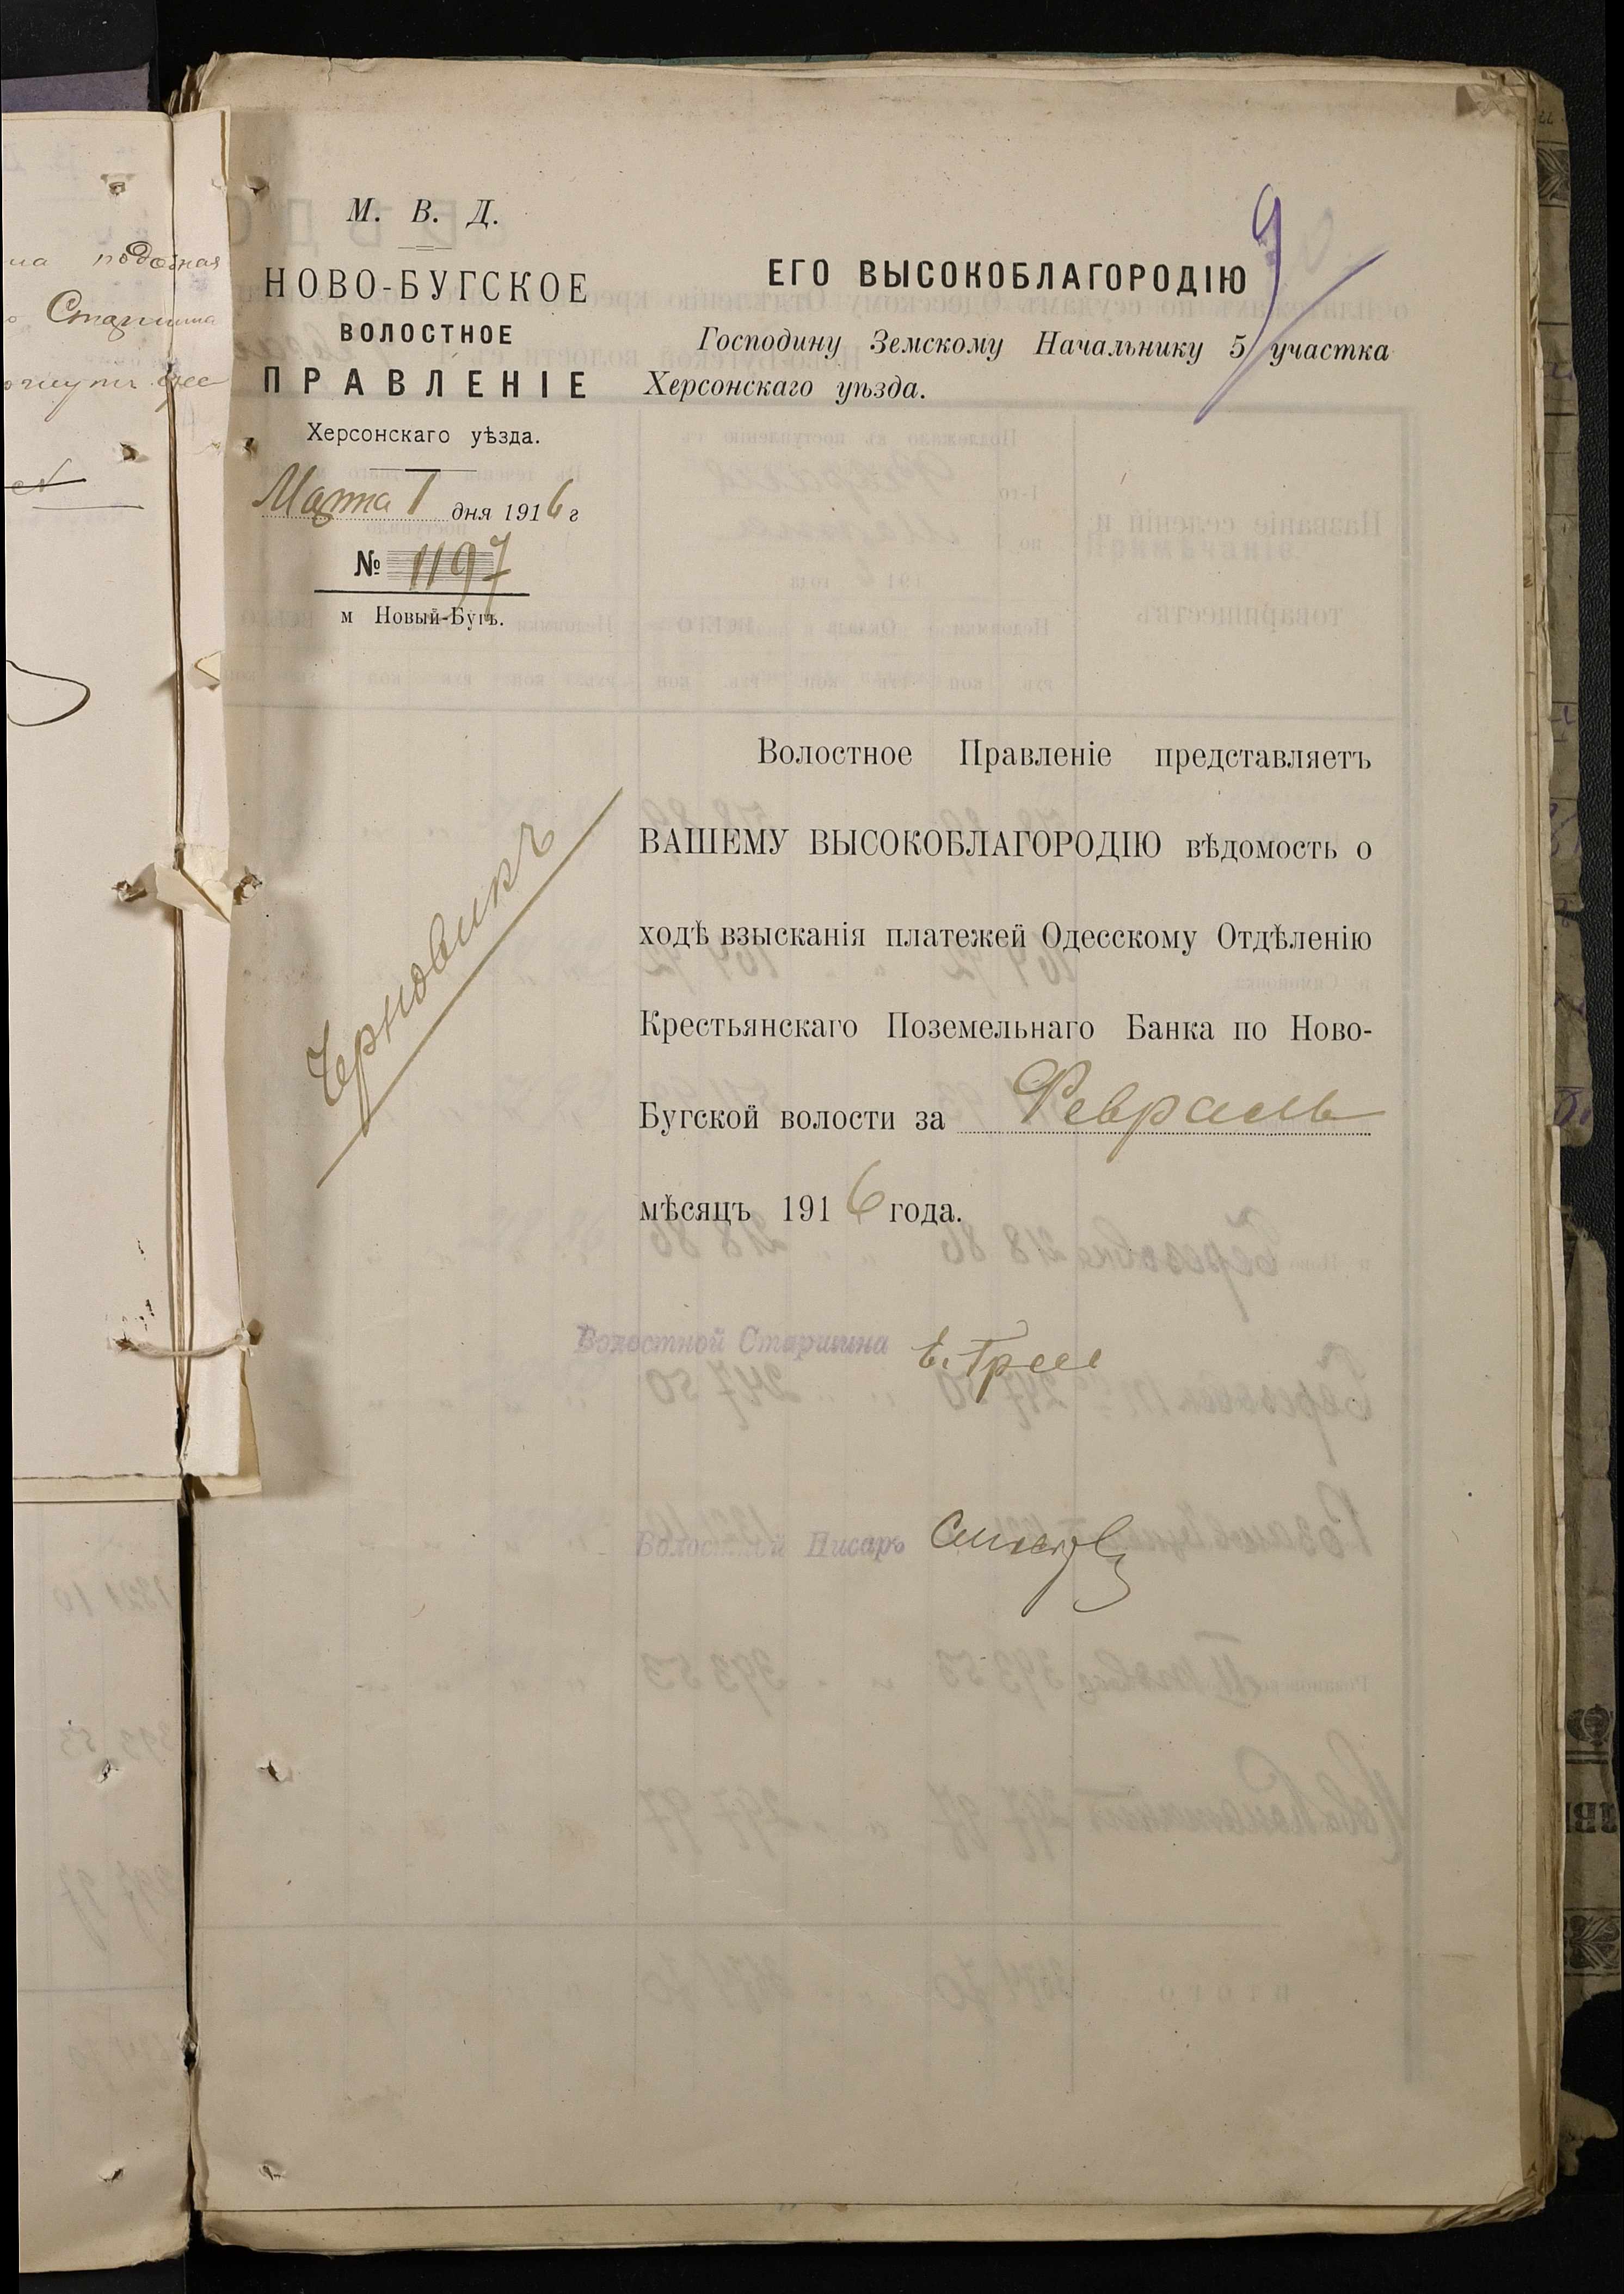 на подобная
Старшина
М. В. Д.
НОВО-БУГСКОЕ
ВОЛОСТНОЕ
ПРАВЛЕНІЕ
Херсонскаго уѣзда.
Марта 1 дня 1916 г
№ 1197
м Новый-Бугъ.
9
ЕГО ВЫСОКОБЛАГОРОДІЮ
Господину Земскому Начальнику 5 участка
Херсонскаго уѣзда.
Черновикъ
Волостное Правленіе представляетъ
ВАШЕМУ ВЫСОКОБЛАГОРОДІЮ вѣдомость о
ходѣ взысканія платежей Одесскому Отдѣленію
Крестьянскаго Поземельнаго Банка по Ново-
Бугской волости за Февраль
мѣсяцъ 1916 года.
Волостной Старшина
Волостной Писарь